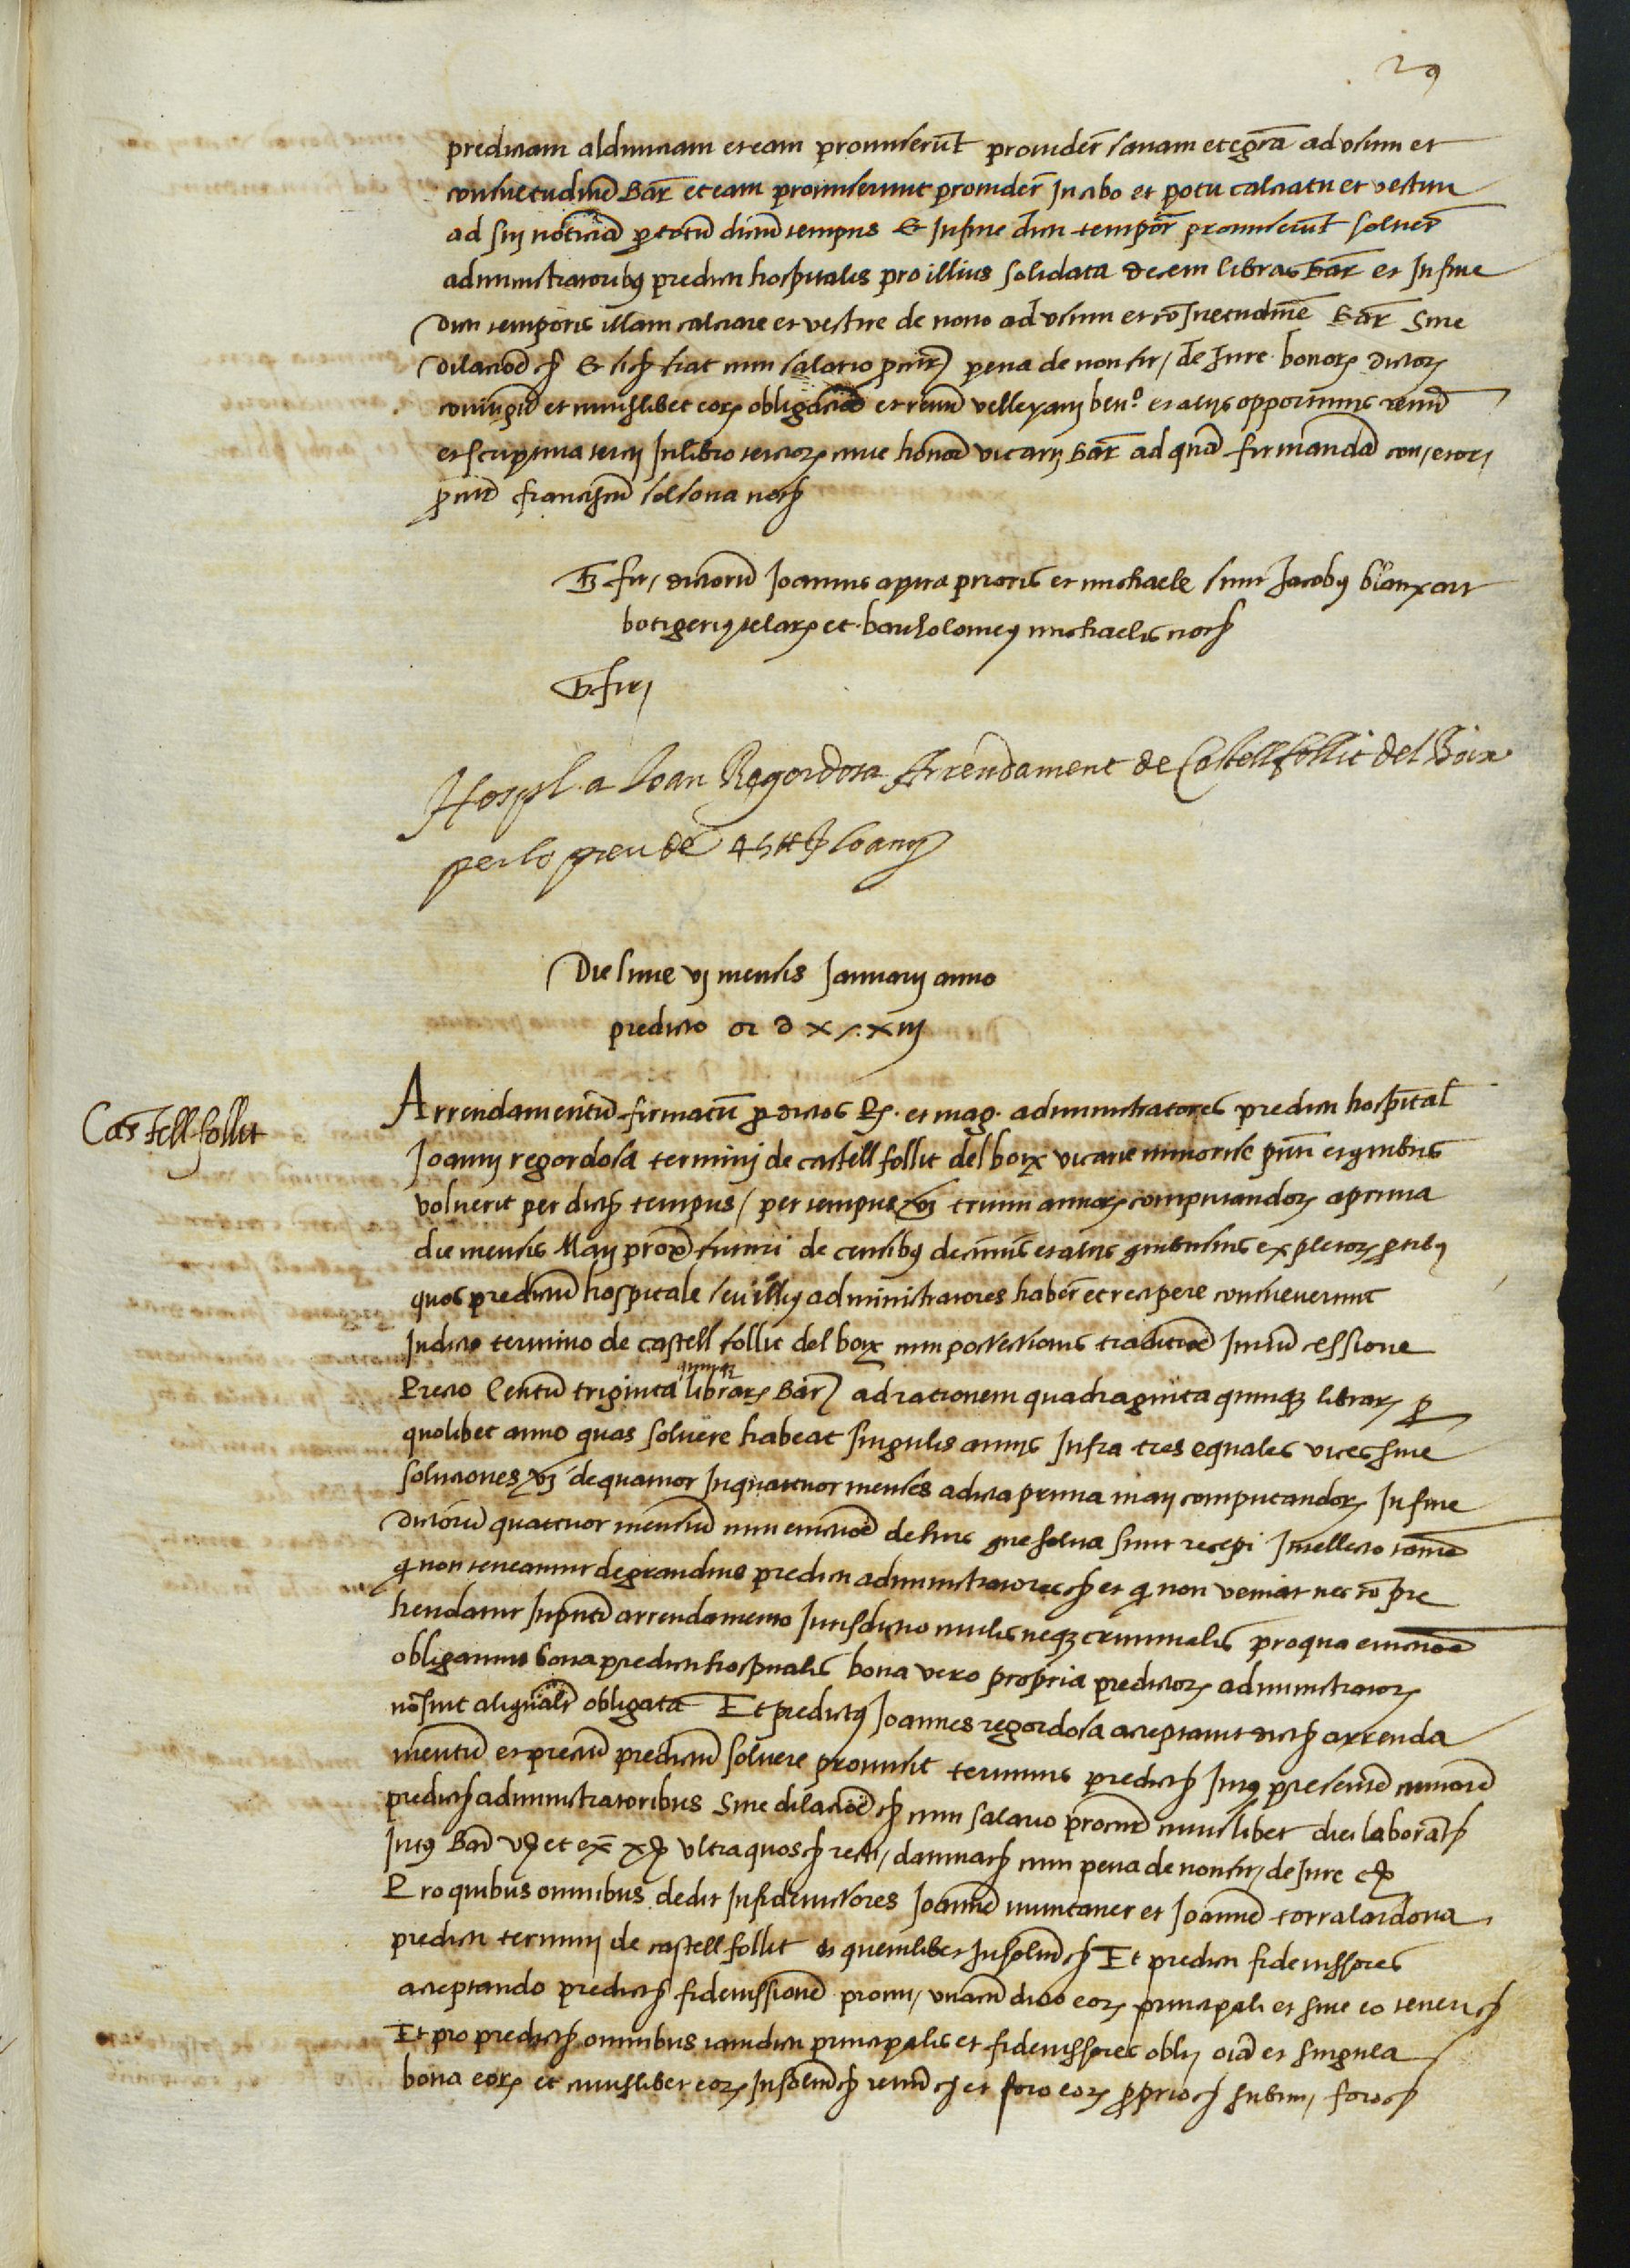 29
predictam aldonciam et eam promiserūt prouider̄ sanam et egrā ad usum et
consuetudinē Bar̄ et eam promiserunt prouider̄ In cibo et potu calciatu et vestitu
ad sui noticiā p totū dictū tempus Et In fine dicti tempor̄ promiserūt soluer̄
administratoribꝰ predicti hospitalis pro illius solidata decem libras Bar̄ et In fine
dicti temporis illam calciare et vestire de nouo ad usum et cōsuetudinē Bar̄ Sine
dilacioē etc Et fiat cum salario pena de non fir/ de Jure bonoꝝ dictoꝝ
coniugū et cuiuslibet eoꝝ obligacioē et renū velleyani ben.º et alijs opportunis renū
et scriptura tercij In libro tercioꝝ curie honoꝭ vicarij Bar̄ ad quā firmandā
franciscū solsona notꝭ
Tꝭ fir/ dictorū Joannis prioris et michaele sunt Jacobꝰ blanxart
botigeriꝰ telaꝝ et bartholomeꝰ michaelis notꝭ
Tꝭ fir/
Hospl. a Ioan Regordosa Arrendament de Castellfollit del Boix
per lo preu de 45 ℔ ꝑ Quo anÿ
Die lune vj mensis Januarij anno
predicto M D X L X iij
Castellfollit
Arrendamentū firmatū p dictos R.ˢ et mag. administratores predicti hospital̄
Joanni regordosa termini de castell follit del boix vicarie minorise pn̄ti et quibus
voluerit per dictꝭ tempus / per tempus trium annoꝝ computandoꝝ a prima
die mensis Maij prox̄ futuri de censibꝰ decimis et alijs quibusuis expletoꝝ
quos predictū hospitale seu illiꝰ administratores haber̄ et recipere consueuerunt
In dicto termino de castell follit del boix cum possessionis tradicioē Iuriū cessione
Precio Centū triginta quinqꝫ libraꝝ Barꝭ ad rationem quadraginta quinqꝫ libraꝝ p
quolibet anno quas soluere habeat singulis annis Infra tres equales vices siue
soluciones de quatuor In quatuor menses a dicta prima maij computandoꝝ In fine
dictorū quatuor mensiū cum euictioē de hijs que soluta sunt recepi Intellecto tamē
q non teneantur de grandine predicti administratores etc et q non veniat nec cōpre
hendatur In pn̄ti arrendamento Jurisdictio ciuilis neqꝫ criminalis pro qua euictioē
obligamus bona predicti hospitalis bona vero propria predictoꝝ administratoꝝ
nō sint aliqualr̄ obligata Et predictꝰ Joannes regordosa acceptauit dictꝭ arrenda
mentū et preciū predictū soluere promisit terminis predictꝭ Intꝰ presentē ciuitatē
predictꝭ administratoribus Sine dilacioē etc cum salario cuiuslibet diei laboratꝭ
Intꝰ Bar̄ v ß et ex̄ x ß ultra quos etc damna etc cum pena de non fir/ de Jure etc
Pro quibus omnibus dedit In fideiussores Joannē muntaner et Joannē torralardona
predicti termini de castell follit et quemlibet In solidū etc Et predicti fideiussores
acceptando predictꝭ fideiussionē promi/ unacū dicto eoꝝ principali et sine eo teneri etc
Et pro predictꝭ omnibus iamdicti principalis et fideiussores obli/ oīa et singula
bona eoꝝ et cuiuslibet eoꝝ In solidū etc renū etc et foro eoꝝ proprio etc submi/ foro etc